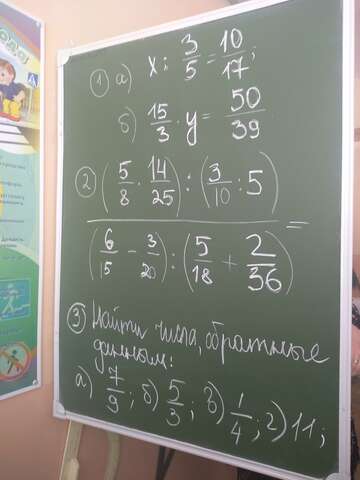 1) а) x : 3/5 = 10/17;
б) 15/3 · y = 50/39
2) (5/8 · 14/25) : (3/10 : 5)
(6/15 - 3/20) : (5/18 + 2/36) =
3) Найти числа, обратные
данным:
а) 7/9; б) 5/3; в) 1/4; г) 11;